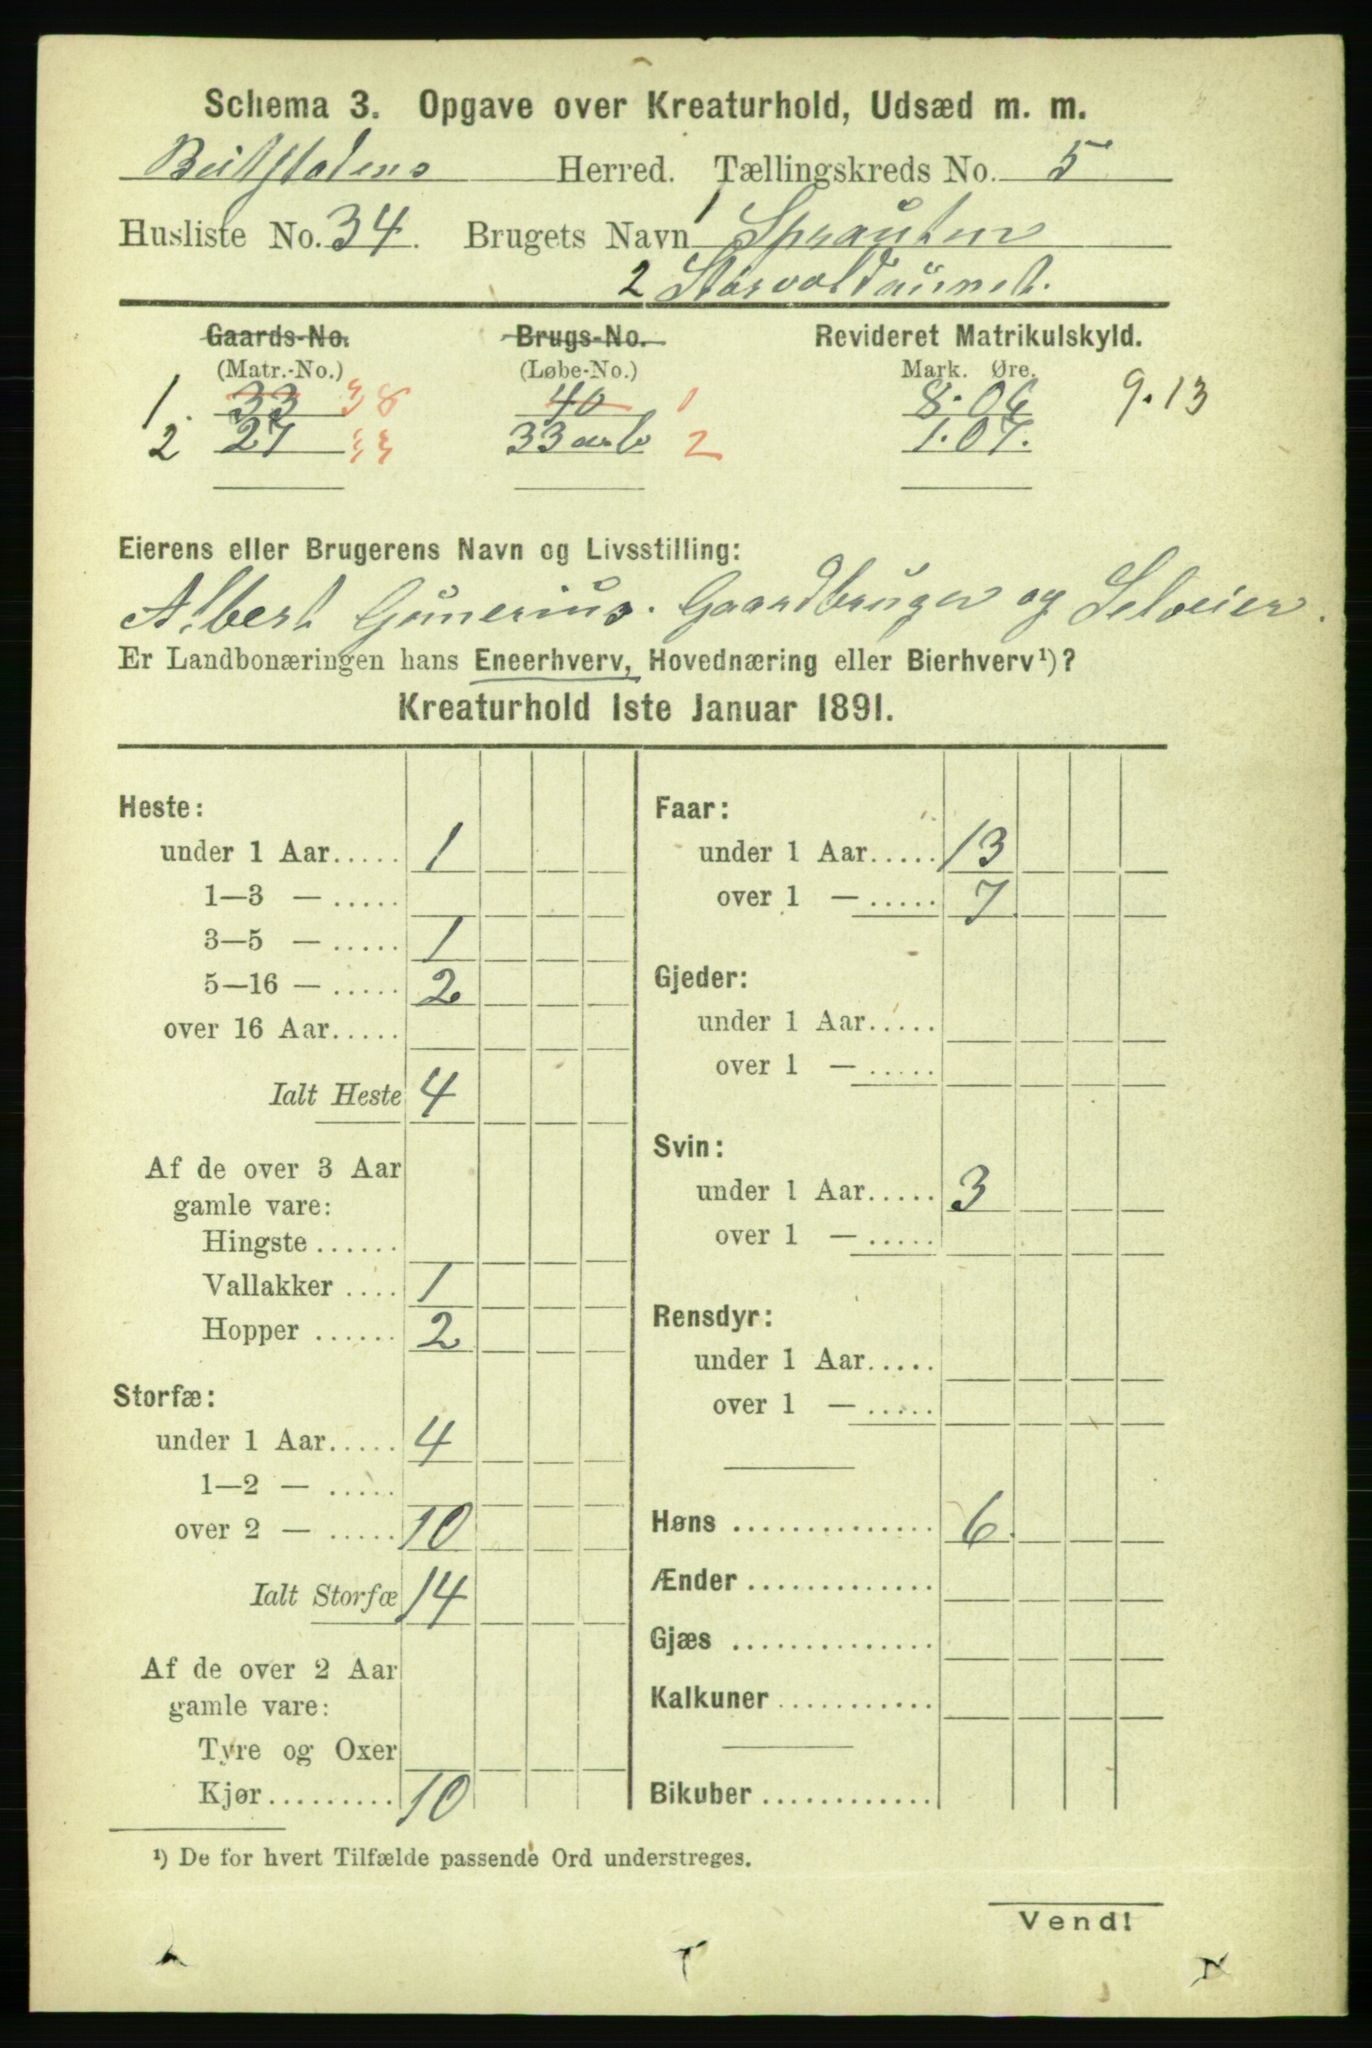 Schema 3. Opgave over Kreaturhold, Udsæd m. m.
Beitstadens Herred. Tællingskreds No. 5
Husliste No. 34. Brugets Navn 1 Sprauten
2 Storvoldaunet.
Gaards-No. Brugs-No. Revideret Matrikulskyld.
(Matr.-No.) (Løbe-No.) Mark. Øre.
1. 33 38 40 1 8.06 9.13
2 27 33 33 a b 2 1.07.
Eierens eller Brugerens Navn og Livsstilling:
Albert Gunerius. Gaardbruger og Selveier.
Er Landbonæringen hans Eneerhverv, Hovednæring eller Bierhverv¹)?
Kreaturhold 1ste Januar 1891.
Heste:
under 1 Aar..... 1
1—3 — .....
3—5 — ..... 1
5—16 — ..... 2
over 16 Aar.....
Ialt Heste 4
Af de over 3 Aar
gamle vare:
Hingste ......
Vallakker .... 1
Hopper ...... 2
Storfæ:
under 1 Aar..... 4
1—2 — .....
over 2 — ..... 10
Ialt Storfæ 14
Af de over 2 Aar
gamle vare:
Tyre og Oxer
Kjør......... 10
Faar:
under 1 Aar..... 13
over 1 — ..... 7
Gjeder:
under 1 Aar.....
over 1 — .....
Svin:
under 1 Aar..... 3
over 1 — .....
Rensdyr:
under 1 Aar.....
over 1 — .....
Høns .............. 6
Ænder .............
Gjæs ..............
Kalkuner ...........
Bikuber ............
¹) De for hvert Tilfælde passende Ord understreges.
Vend!